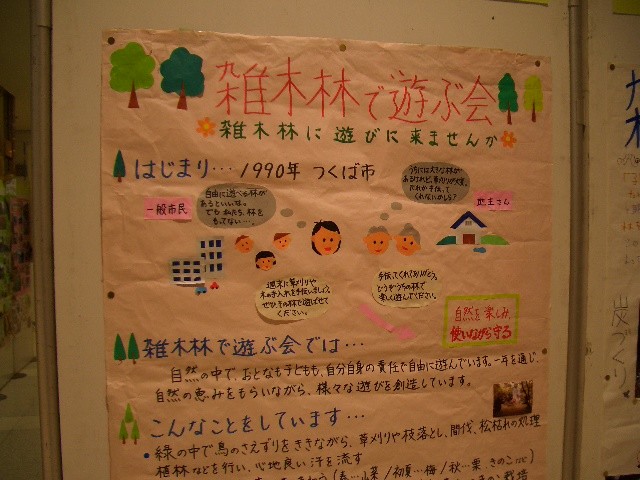 雑木林で遊ぶ会
雑木林に遊びに来ませんか
はじまり… 1990年 つくば市
一般市民
自由に遊べる林が
あるといいな。
でも私たち、林を
もってない…。
うちには大きな林が
あるけれど、草刈りが大変。
だれか手伝って
くれないかしら?
地主さん
週末に草刈りや
木の手入れを手伝いましょう。
ぜひ、その林で遊ばせて
ください。
手伝ってくれてありがとう。
どうぞうちの林で
楽しく遊んでください。
自然を楽しみ、
使いながら守る
雑木林で遊ぶ会では…
自然の中で、おとなも子どもも、自分自身の責任で自由に遊んでいます。一年を通じ、
自然の恵みをもらいながら、様々な遊びを創造しています。
こんなことをしています…
・緑の中で鳥のさえずりをききながら、草刈りや枝落とし、間伐、松枯れの処理
植林などを行い、心地良い汗を流す